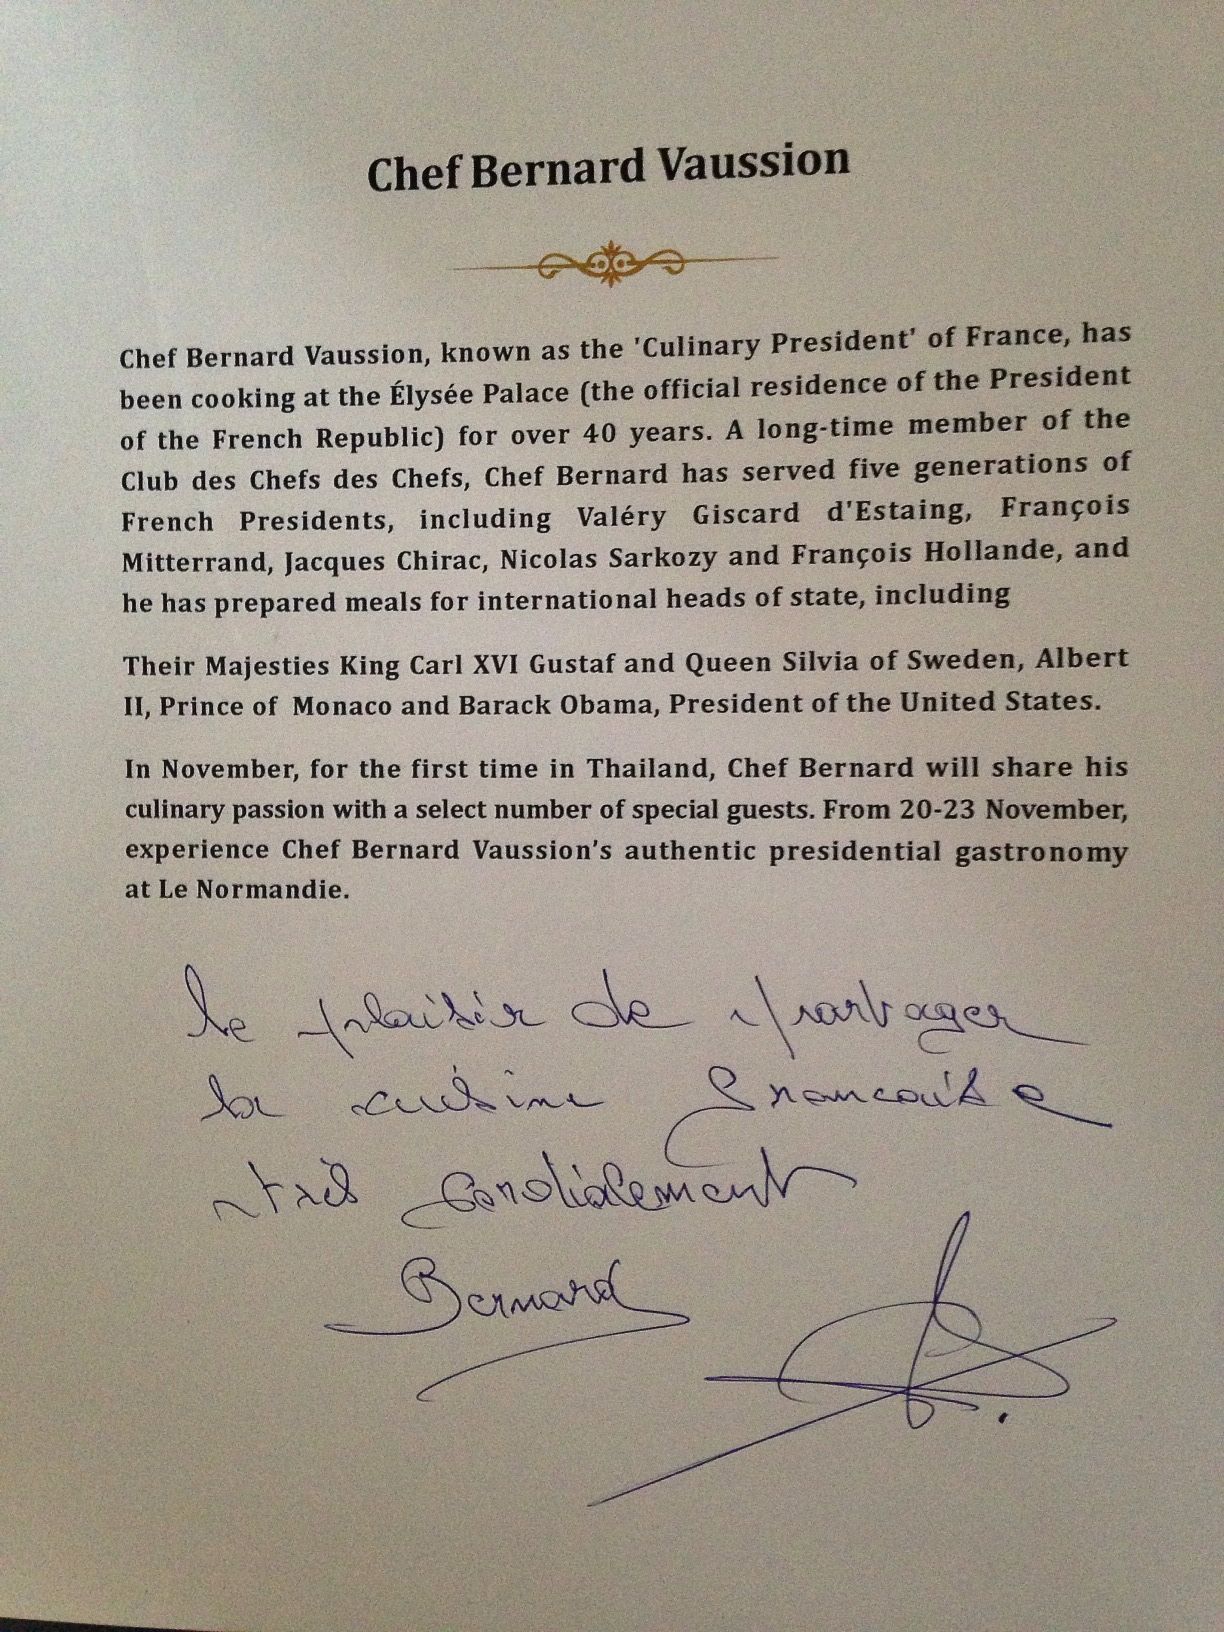 Chef Bernard Vaussion
Chef Bernard Vaussion, known as the 'Culinary President' of France, has
been cooking at the Élysée Palace (the official residence of the President
of the French Republic) for over 40 years. A long-time member of the
Club des Chefs des Chefs, Chef Bernard has served five generations of
French Presidents, including Valéry Giscard d'Estaing, François
Mitterrand, Jacques Chirac, Nicolas Sarkozy and François Hollande, and
he has prepared meals for international heads of state, including
Their Majesties King Carl XVI Gustaf and Queen Silvia of Sweden, Albert
II, Prince of Monaco and Barack Obama, President of the United States.
In November, for the first time in Thailand, Chef Bernard will share his
culinary passion with a select number of special guests. From 20-23 November,
experience Chef Bernard Vaussion's authentic presidential gastronomy
at Le Normandie.
le plaisir de partager
la cuisine Francaise
très cordialement
Bernard